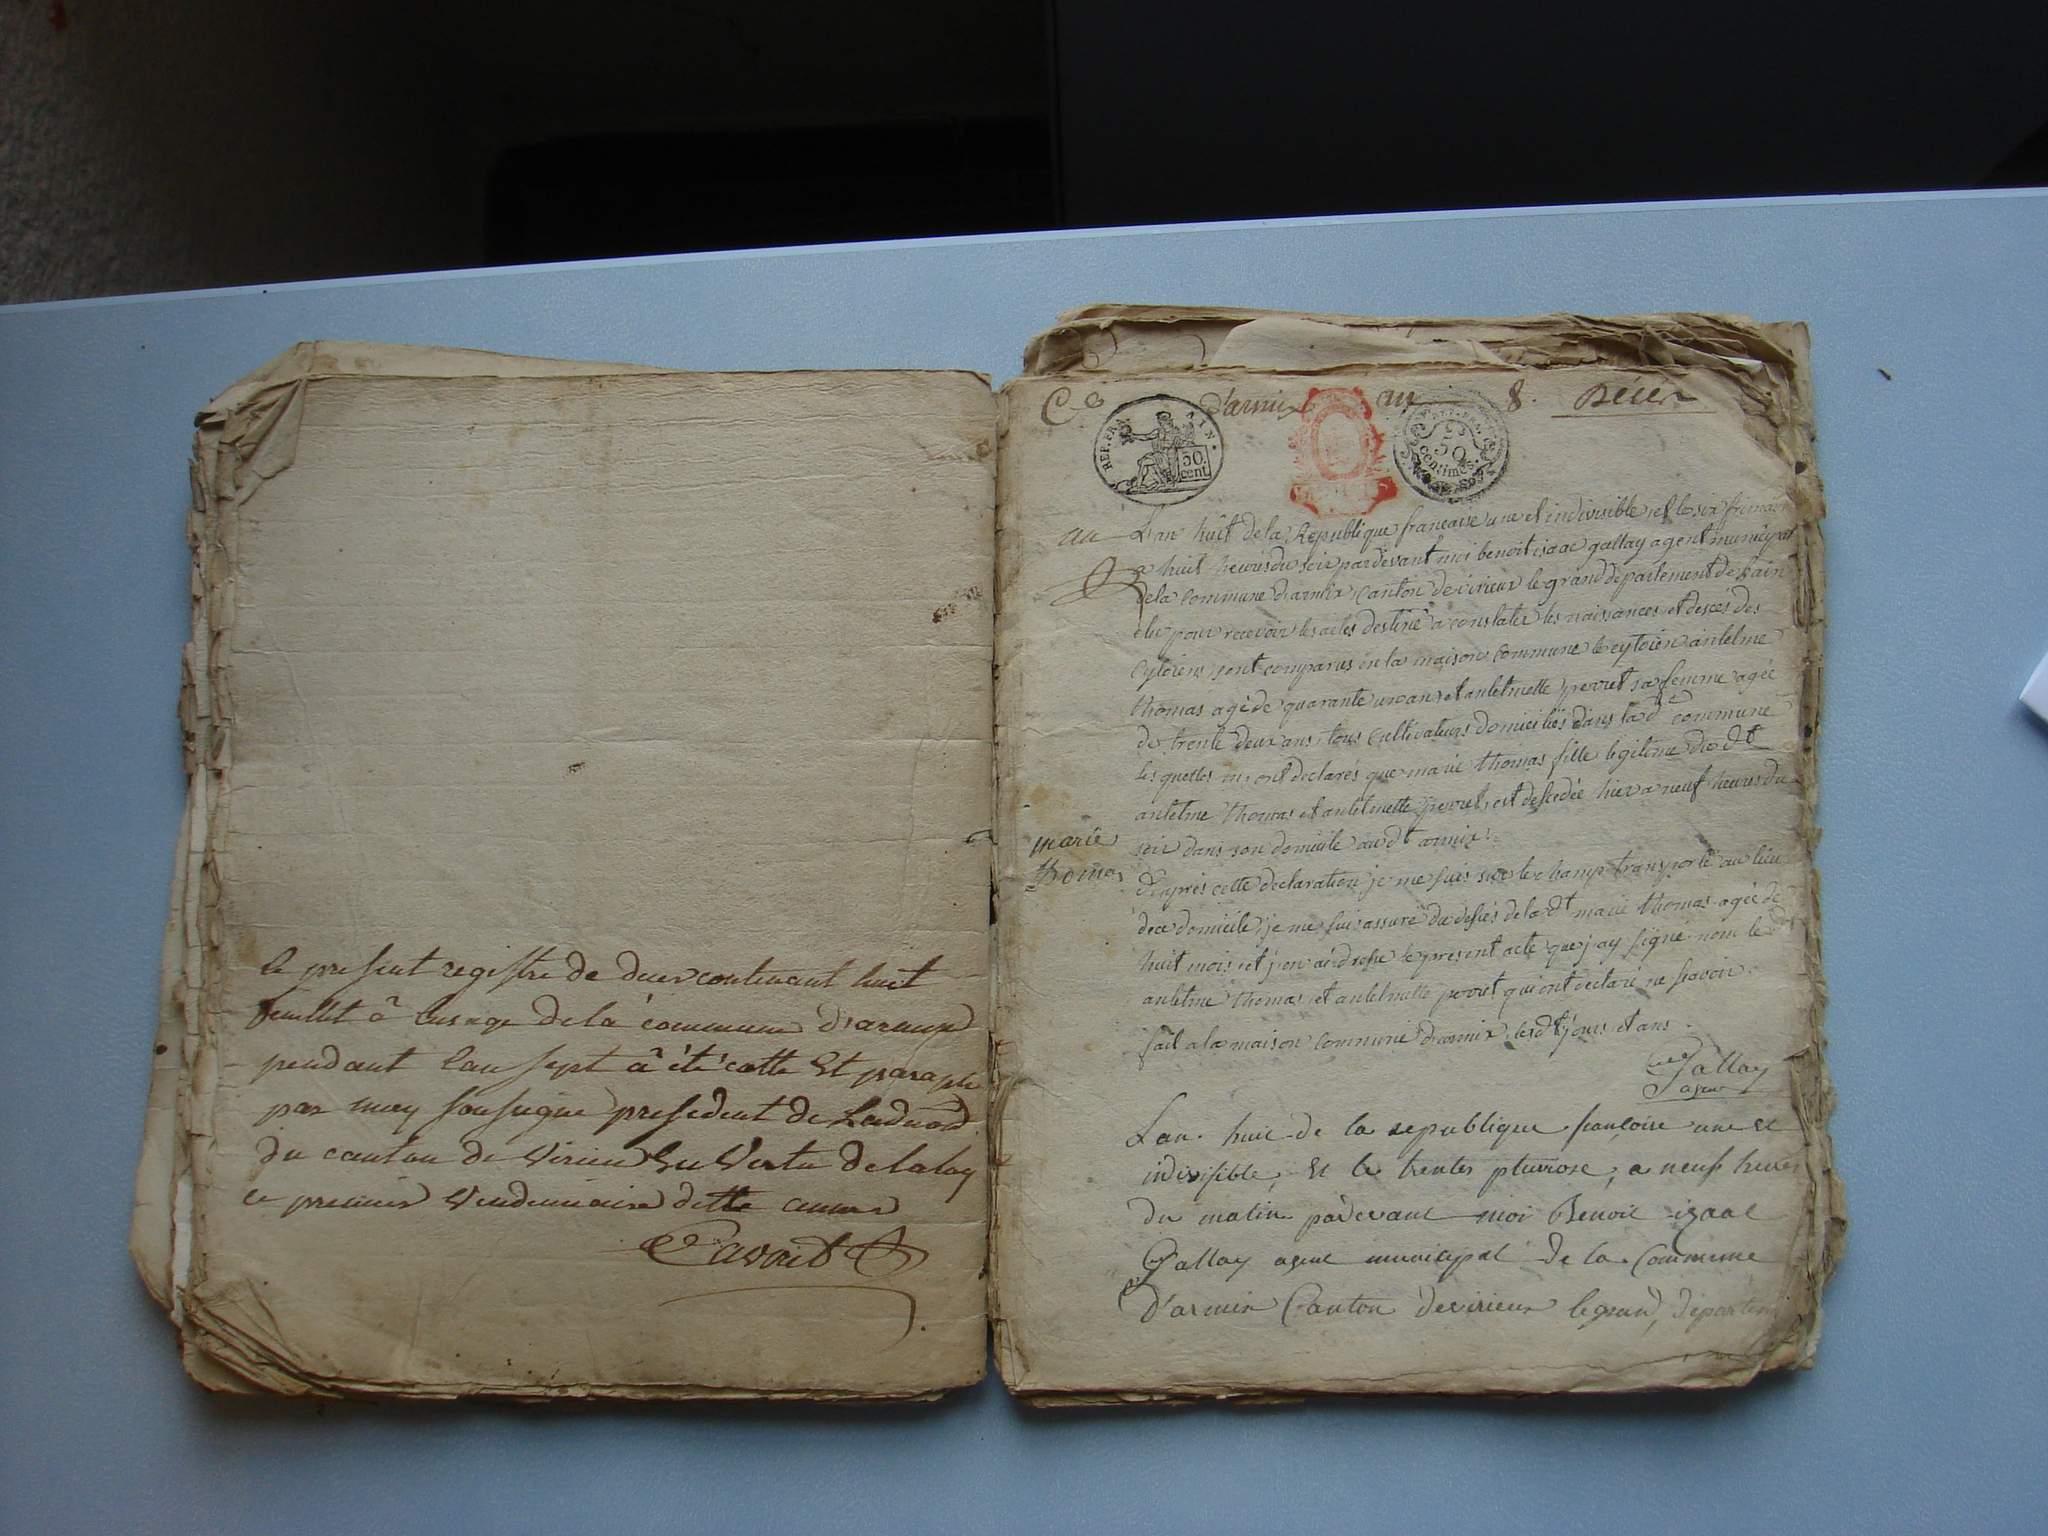 le present registre de deces contenant huit
feuillet â lusage de la commune d'armix
pendant lan sept â été cotté Et paraphé
par moy soussigné president de Ladmōn
du canton de Virieu En Vertu de la loy
ce premier Vendemiaire ditte annee
Savoit
C d'armix an 8. Décès
REP. FRA. AIN.
50 cent
50 centimes
au Lan huit de la Republique francaise une et indivisible et le six frimaire
a huit heures du soir pardevant moi benoit isaac gallay agent municipal
de la commune d'armix canton de virieux le grand departement de lain
elu pour recevoir les actes destiné a constater les naissances et desces des
cytoiens sont comparus en la maison commune le cytoien antelme
thomas agé de quarante un ans et antelmette perret sa femme agée
de trente deux ans tous cultivateurs domiciliés dans la dte commune
lesquelles m'ont declarés que marie thomas fille legitime du dt
antelme thomas et antelmette perret est descedée hier a neuf heures du
soir dans son domicile au dt armix.
marie
thomas
d'après cette declaration je me suis sur le champ transporté au lieu
de ce domicile, je me suis assuré du desces de la dt marie thomas agée de
huit mois et j'en ai dressé le present acte que j'ay signé non le dt
antelme thomas et antelmette perret qui ont declaré ne scavoir
fait a la maison commune d'armix les dt jours et ans
Gallay
agent
Lan huit de la republique françoise une et
indivisible, et le trentes pluviose, a neufs heures
du matin pardevant moi Benoit izaac
Gallay agent municipal de la Commune
d'armix Canton de virieux le grand, departement